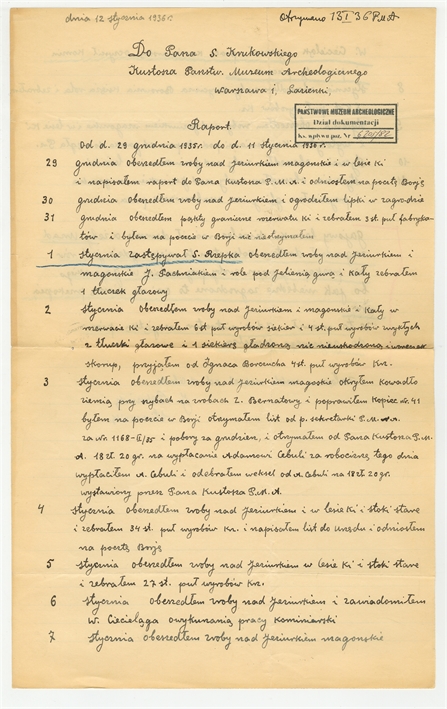 dnia 12 stycznia 1936 r.
Otrzymano 13 I 36 P.M.A
Do Pana S. Krukowskiego
Kustosza Państw. Muzeum Archeologicznego
Warszawa 1, Łazienki,
PAŃSTWOWE MUZEUM ARCHEOLOGICZNE
Dział dokumentacji
Ks. wpływu poz. Nr
Raport.
Od d. 29 grudnia 1935r. do d. 11 stycznia 1936 r.
29 grudnia obszedłem zroby nad Jeziurkiem magońskie i w lesie Ki
i napisałem raport do Pana Kustosza P.M.A i odniosłem na pocztę Borję
30 grudnia obszedłem zroby nad Jeziurkiem i ogrodziłem lipki w zagrodzie
31 grudnia obszedłem pakty graniczne rezerwatu Ki i zebrałem 3 st. puł fabryka-
tów i byłem na poczcie w Borji nic nieotrzymałem
1 stycznia zastępywał S. Rzepka obszedłem zroby nad Jeziurkiem i
magońskie J. Pastwiakiem i role pod Jelenią gurą i Kąty zebrałem
1 tłuczek głazowy
2 stycznia obszedłem zroby nad Jeziurkiem i magońskie i Kąty w
rezerwacie Ki i zebrałem 6 st puł wyrobów siekier i 4 st. puł wyrobów
2 tłucski głazowe i 1 siekierę gładzoną nic nieuszkodzoną
skorup, przyjąłem od Ignaca Borcucha 4 st. puł wyrobów Kr.
3 stycznia obszedłem zroby nad Jeziurkiem magoskie okryłem kowadło
ziemią przy szybach na zrobach Z. Bernatowy i poprawiłem Kopiec nr. 41
byłem na poczcie w Borji otrzymałem list od p. sekretarki P.M.A.
za No 1168-II/35 i pobory za grudzień, i otrzymałem od Pana Kustosza P.M.
A. 18 zł 20 gr. na wypłacanie Adamowi Cebuli za robociznę, tego dnia
wypłaciłem A. Cebuli i odebrałem weksel od A. Cebuli na 18 zł 20 gr.
wystawiony przez Pana Kustosza P.M.A.
4 stycznia obszedłem zroby nad Jeziurkiem i w lesie Ki i stoki stare
i zebrałem 34 st. puł wyrobów Kr. i napisałem list do Urzędu i odniosłem
na pocztę Borję
5 stycznia obszedłem zroby nad Jeziurkiem w lesie Ki i stoki stare
i zebrałem 27 st. puł wyrobów Kr.
6 stycznia obszedłem zroby nad Jeziurkiem i zawiadomiłem
W. Ciecieląga o wykunanią pracy kominiarski
7 stycznia obszedłem zroby nad Jeziurkiem magońskie